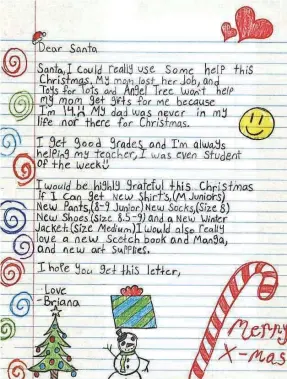 Dear Santa,
Santa, I could really use some help this
Christmas. My mom lost her Job, and
Toys for Tots and Angel Tree won't help
my mom get gifts for me because
I'm 14. My dad was never in my
life nor there for Christmas.
I get good grades, and I'm always
helping my teacher, I was even student
of the week!
I would be highly grateful this Christmas
if I can get New Shirt's, (M Juniors)
New Pants, (8-9 Junior) New Socks, (Size 8)
New Shoes (Size 8.5-9) and a New Winter
Jacket. (Size Medium) I would also really
love a new Scetch book and Manga,
and new art Supplies.
I hope you get this letter,
-Love
-Briana
Merry
X-mas